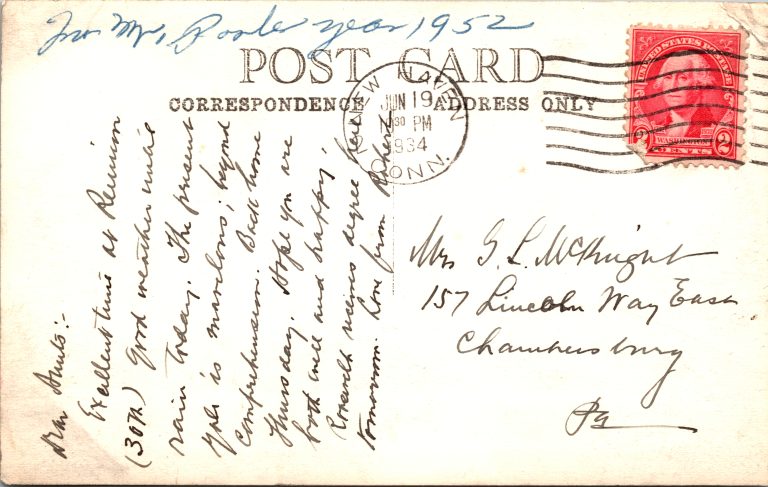 From Mr. Poole year 1952
POST CARD
CORRESPONDENCE ADDRESS ONLY
NEW HAVEN
JUN 19
30 PM
1934
CONN.
UNITED STATES POSTAGE
WASHINGTON
2 CENTS 2
Dear Aunts:-
Excellent time at Reunion
(30th) Good weather until
rain today. The present
Yale is marvelous; beyond
comprehension. Back home
Thursday. Hope you are
both well and happy.
Roosevelt receives degree here
tomorrow. Love from Robert
Mrs G. L. McKnight
157 Lincoln Way East
Chambersburg
Pa